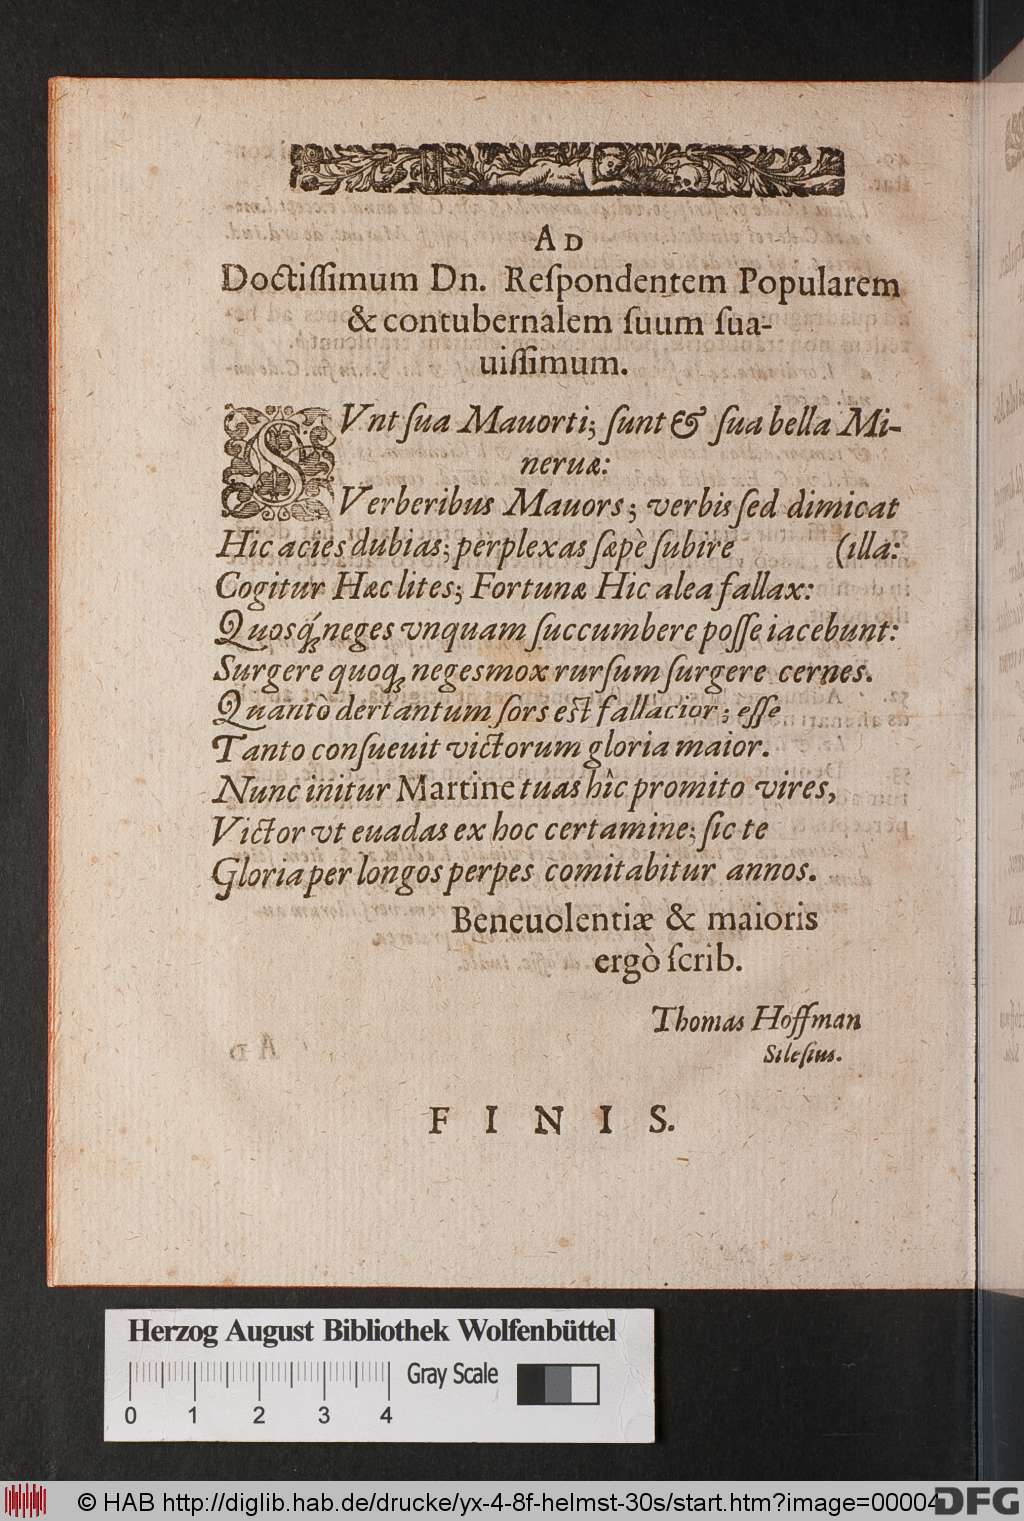 AD
Doctiſſimum Dn. Reſpondentem Popularem
& contubernalem ſuum ſua-
uiſſimum.
SVnt ſua Mauorti; ſunt & ſua bella Mi-
neruæ:
Verberibus Mauors; verbis ſed dimicat
Hic acies dubias; perplexas ſæpè ſubire (illa:
Cogitur Hæc lites; Fortunæ Hic alea fallax:
Quosq́; neges vnquam ſuccumbere poſſe iacebunt:
Surgere quoſq; neges mox rurſum ſurgere cernes.
Quantò dertantum ſors eſt fallacior; eſſe
Tanto conſueuit victorum gloria maior.
Nunc initur Martine tuas hîc promito vires,
Victor vt euadas ex hoc certamine: ſic te
Gloria per longos perpes comitabitur annos.
Beneuolentiæ & maioris
ergò ſcrib.
Thomas Hoffman
Sileſius.
FINIS.
Herzog August Bibliothek Wolfenbüttel
Gray Scale
0 1 2 3 4
© HAB http://diglib.hab.de/drucke/yx-4-8f-helmst-30s/start.htm?image=00004
DFG